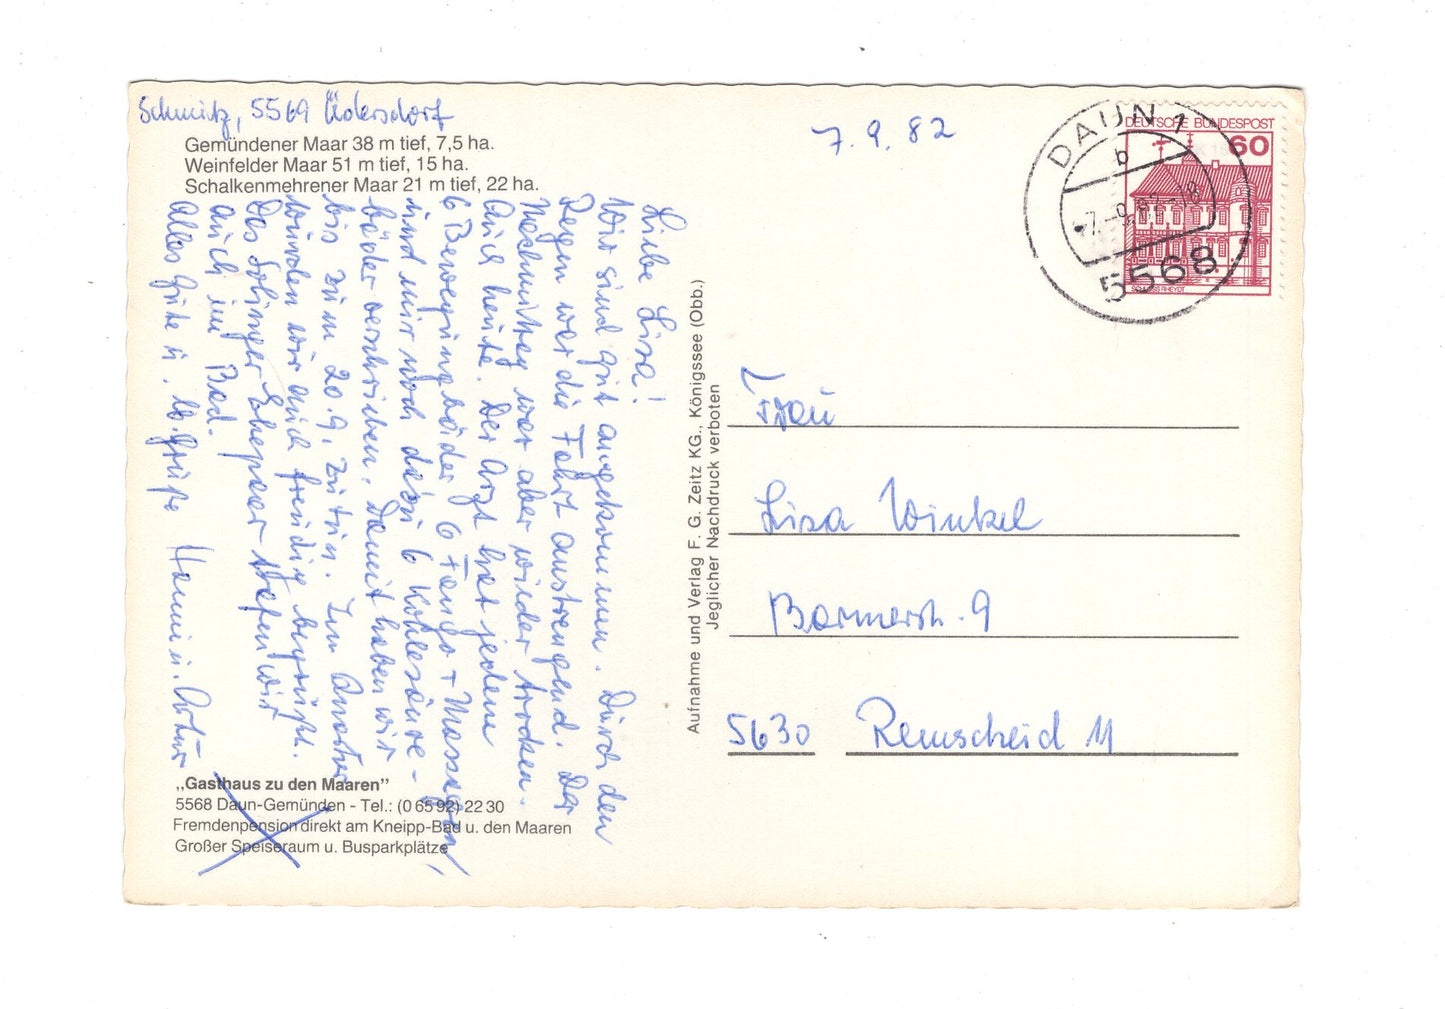 Schmitz, 5569 Üdersdorf
Gemündener Maar 38 m tief, 7,5 ha.
Weinfelder Maar 51 m tief, 15 ha.
Schalkenmehrener Maar 21 m tief, 22 ha.
7.9.82
Liebe Lisa!
Wir sind gut angekommen. Durch den
Regen war die Fahrt anstrengend. Der
Nachmittag war aber wieder trocken.
Auch heute. Der Arzt hat jedem
6 Bewegungsbäder 6 Fango + Massagen,
und mir noch dazu 6 Kohlesäure-
bäder verschrieben. Damit haben wir
bis zum 20.9. zu tun. Im Quartier
wurden wir auch freudig begrüßt.
Das Solinger Ehepaar trafen wir
auch im Bad.
Alles Gute u. lb. Grüße Hanni u. Artur
„Gasthaus zu den Maaren”
5568 Daun-Gemünden - Tel.: (0 65 92) 22 30
Fremdenpension direkt am Kneipp-Bad u. den Maaren
Großer Speiseraum u. Busparkplätze
Aufnahme und Verlag F. G. Zeitz KG., Königssee (Obb.)
Jeglicher Nachdruck verboten
DEUTSCHE BUNDESPOST
60
SCHLOSS RHEYDT
DAUN 1
b
-7.-9.82-18
5568
Frau
Lisa Winkel
Barmerstr. 9
5630 Remscheid 11